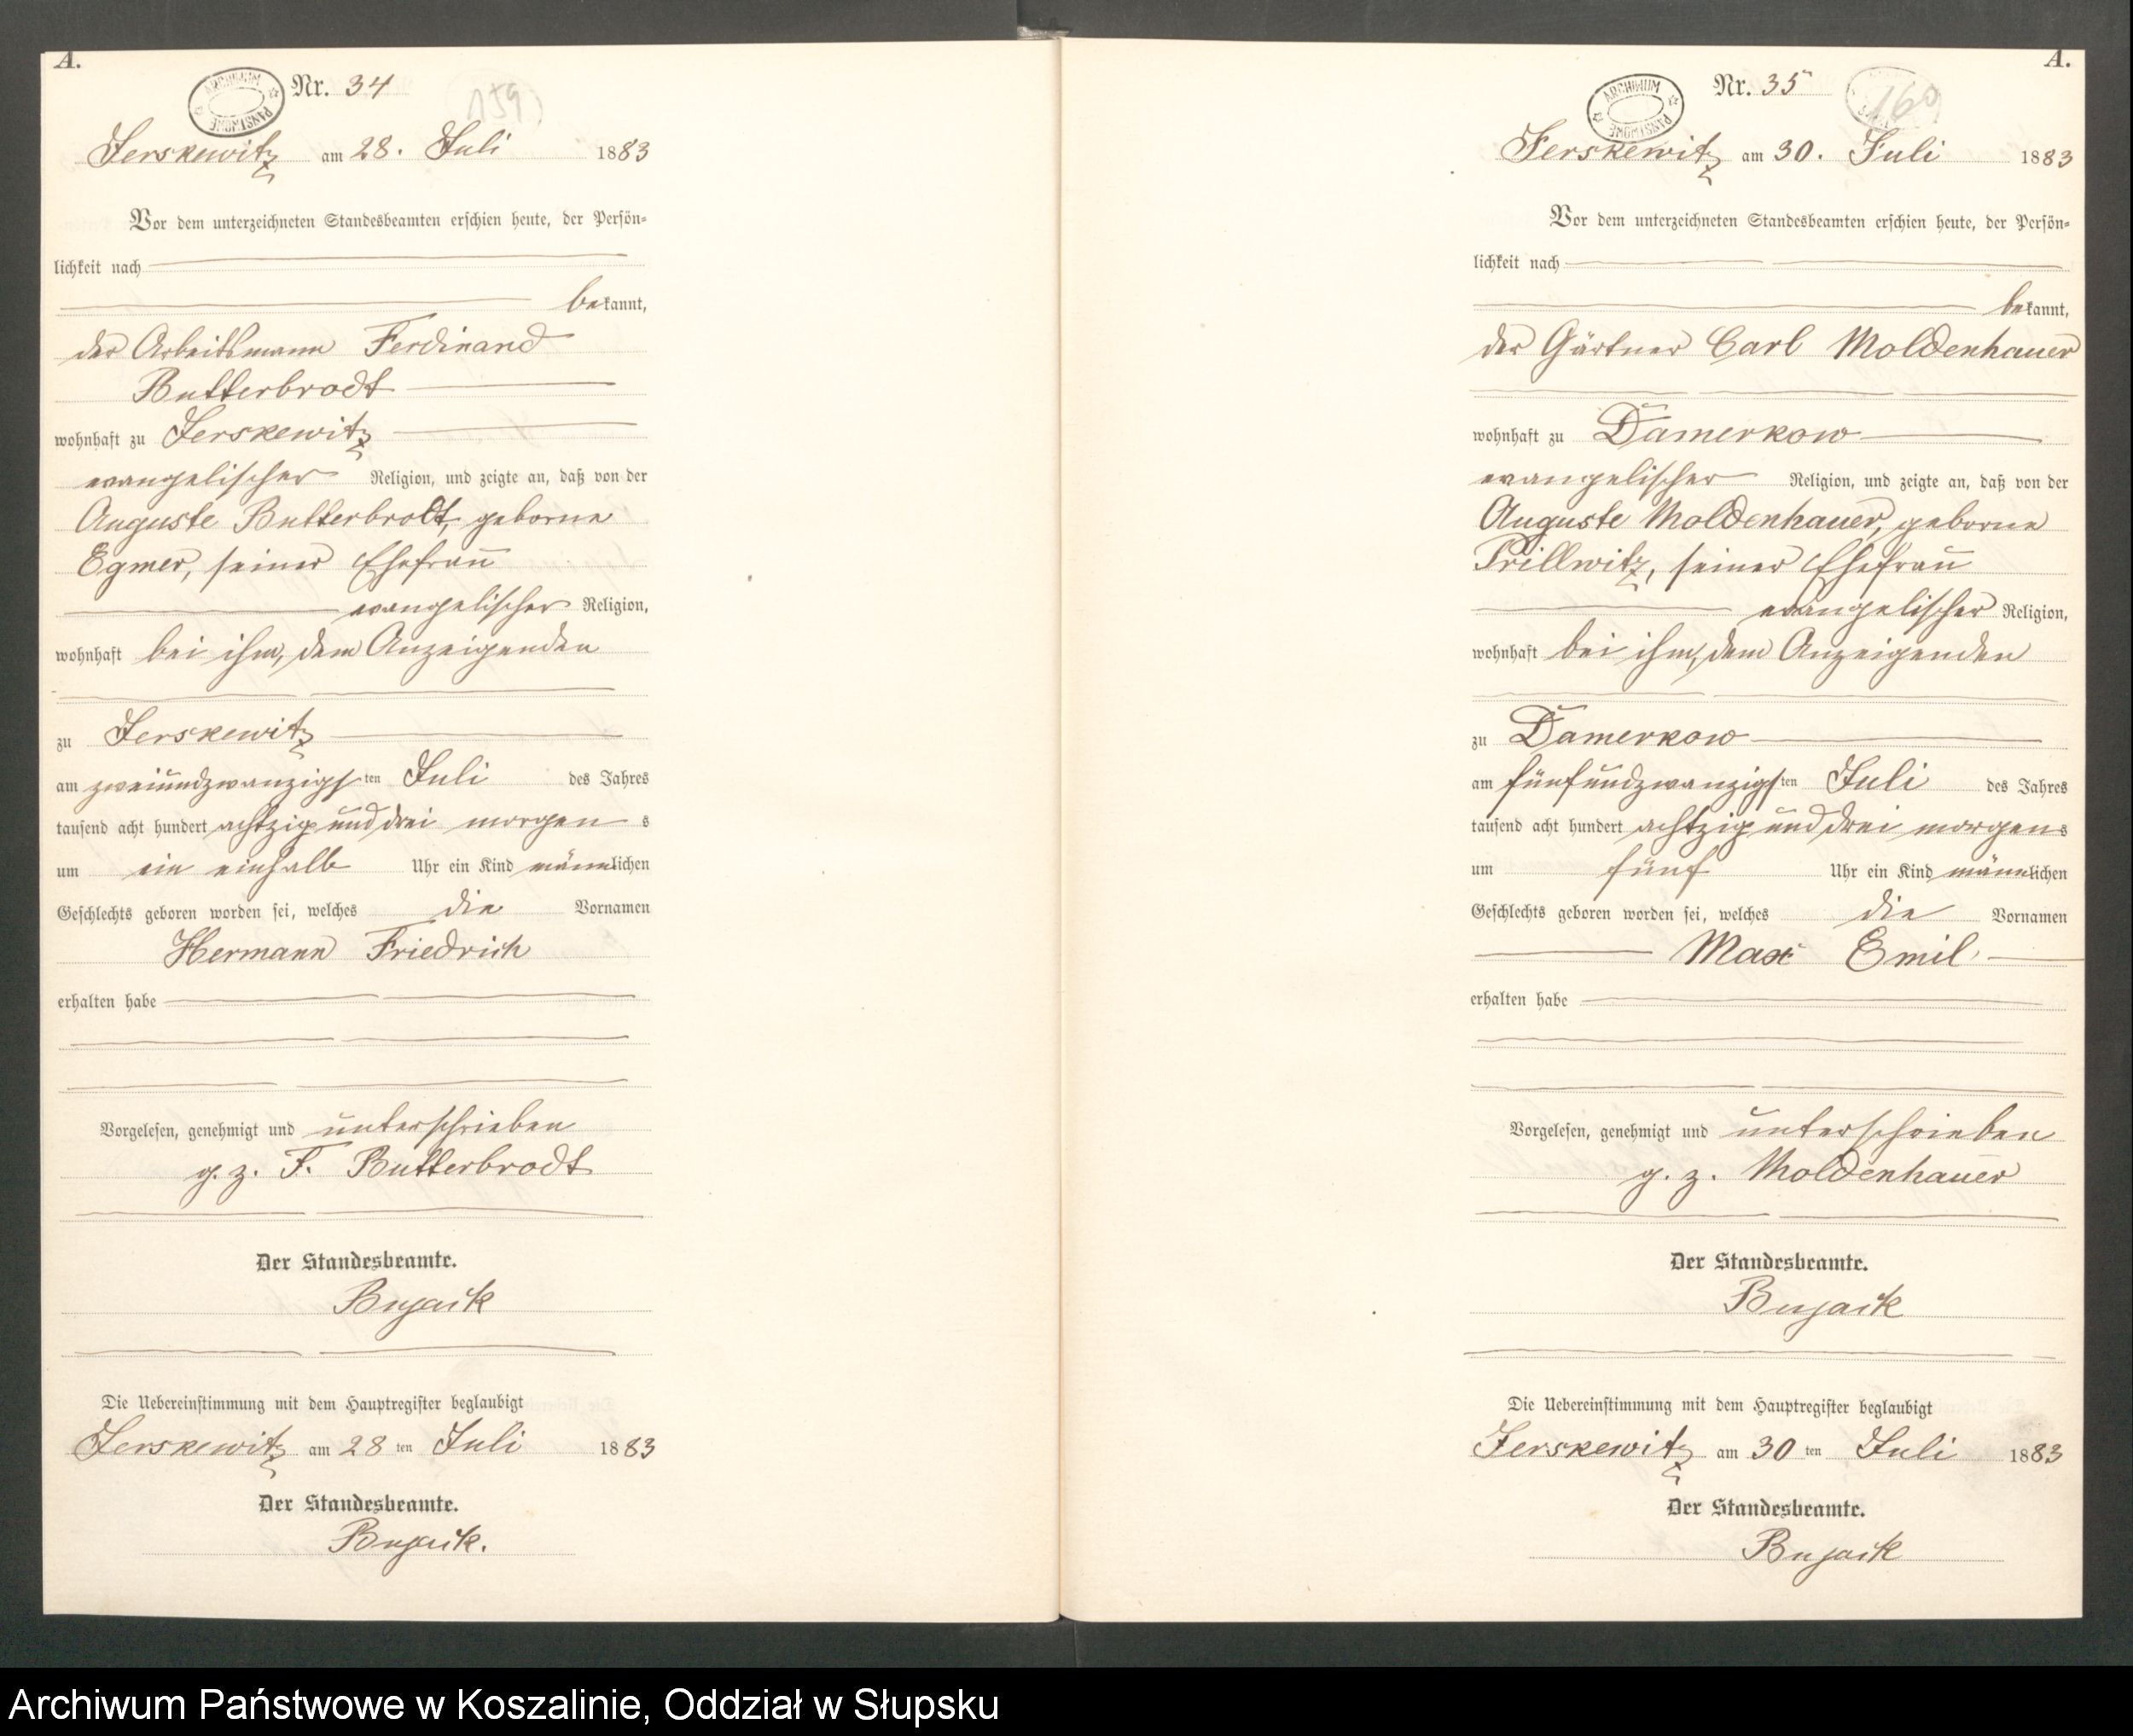 A.
ARCHIWUM PAŃSTWOWE
Nr. 34
159
Jerskewitz am 28. Juli 1883
Vor dem unterzeichneten Standesbeamten erschien heute, der Persön-
lichkeit nach
bekannt,
der Arbeitsmann Ferdinand
Butterbrodt
wohnhaft zu Jerskewitz
evangelischer Religion, und zeigte an, daß von der
Auguste Butterbrodt, geborne
Egmer, seiner Ehefrau
evangelischer Religion,
wohnhaft bei ihm, dem Anzeigenden
zu Jerskewitz
am zweiundzwanzigsten Juli des Jahres
tausend acht hundert achtzig und drei morgens
um ein einhalb Uhr ein Kind männlichen
Geschlechts geboren worden sei, welches die Vornamen
Hermann Friedrich
erhalten habe
Vorgelesen, genehmigt und unterschrieben
g. z. F. Butterbrodt
Der Standesbeamte.
Bujack
Die Uebereinstimmung mit dem Hauptregister beglaubigt
Jerskewitz am 28 ten Juli 1883
Der Standesbeamte.
Bujack.
A.
ARCHIWUM PAŃSTWOWE
Nr. 35
160
Jerskewitz am 30. Juli 1883
Vor dem unterzeichneten Standesbeamten erschien heute, der Persön-
lichkeit nach
bekannt,
der Gärtner Carl Moldenhauer
wohnhaft zu Damerkow
evangelischer Religion, und zeigte an, daß von der
Auguste Moldenhauer, geborne
Prillwitz, seiner Ehefrau
evangelischer Religion,
wohnhaft bei ihm, dem Anzeigenden
zu Damerkow
am fünfundzwanzigsten Juli des Jahres
tausend acht hundert achtzig und drei morgens
um fünf Uhr ein Kind männlichen
Geschlechts geboren worden sei, welches die Vornamen
Max Emil
erhalten habe
Vorgelesen, genehmigt und unterschrieben
g. z. Moldenhauer
Der Standesbeamte.
Bujack
Die Uebereinstimmung mit dem Hauptregister beglaubigt
Jerskewitz am 30 ten Juli 1883
Der Standesbeamte.
Bujack
Archiwum Państwowe w Koszalinie, Oddział w Słupsku